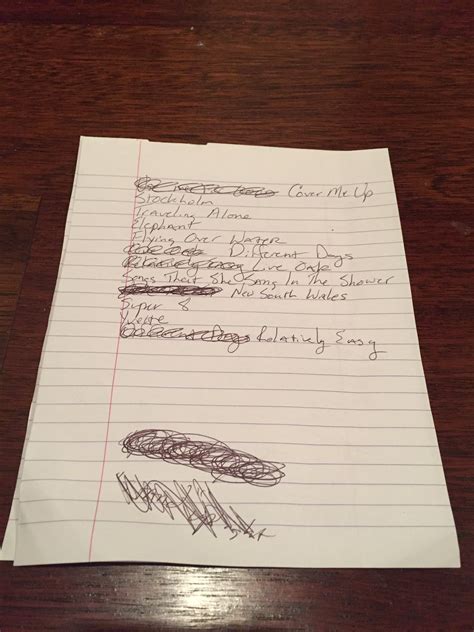 Cover Me Up
Stockholm
Traveling Alone
Elephant
Flying Over Water
Different Days
Live Oak
Songs That She Sang In The Shower
New South Wales
Super 8
Yvette
Relatively Easy